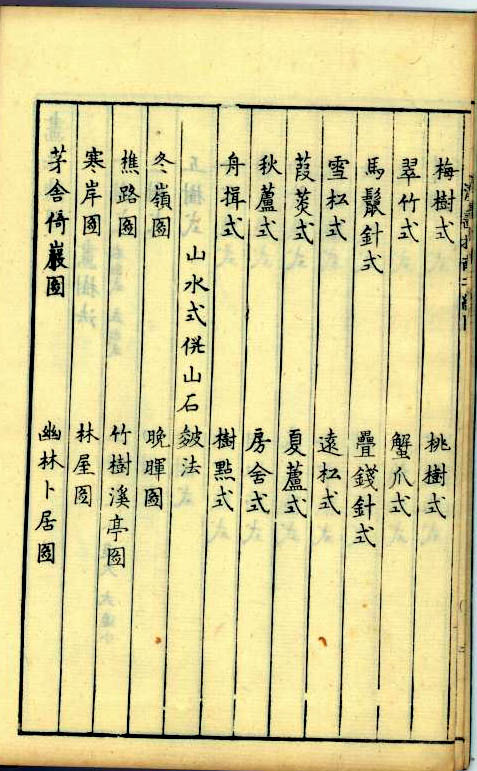 梅樹式 桃樹式
翠竹式 蟹爪式
馬鬛針式 疊錢針式
雪松式 遠松式
葭菼式 夏蘆式
秋蘆式 房舍式
舟揖式 樹點式
山水式併山石皴法
冬嶺圖 晚暉圖
樵路圖 竹樹溪亭圖
寒岸圖 林屋圖
茅舍倚巖圖 幽林卜居圖